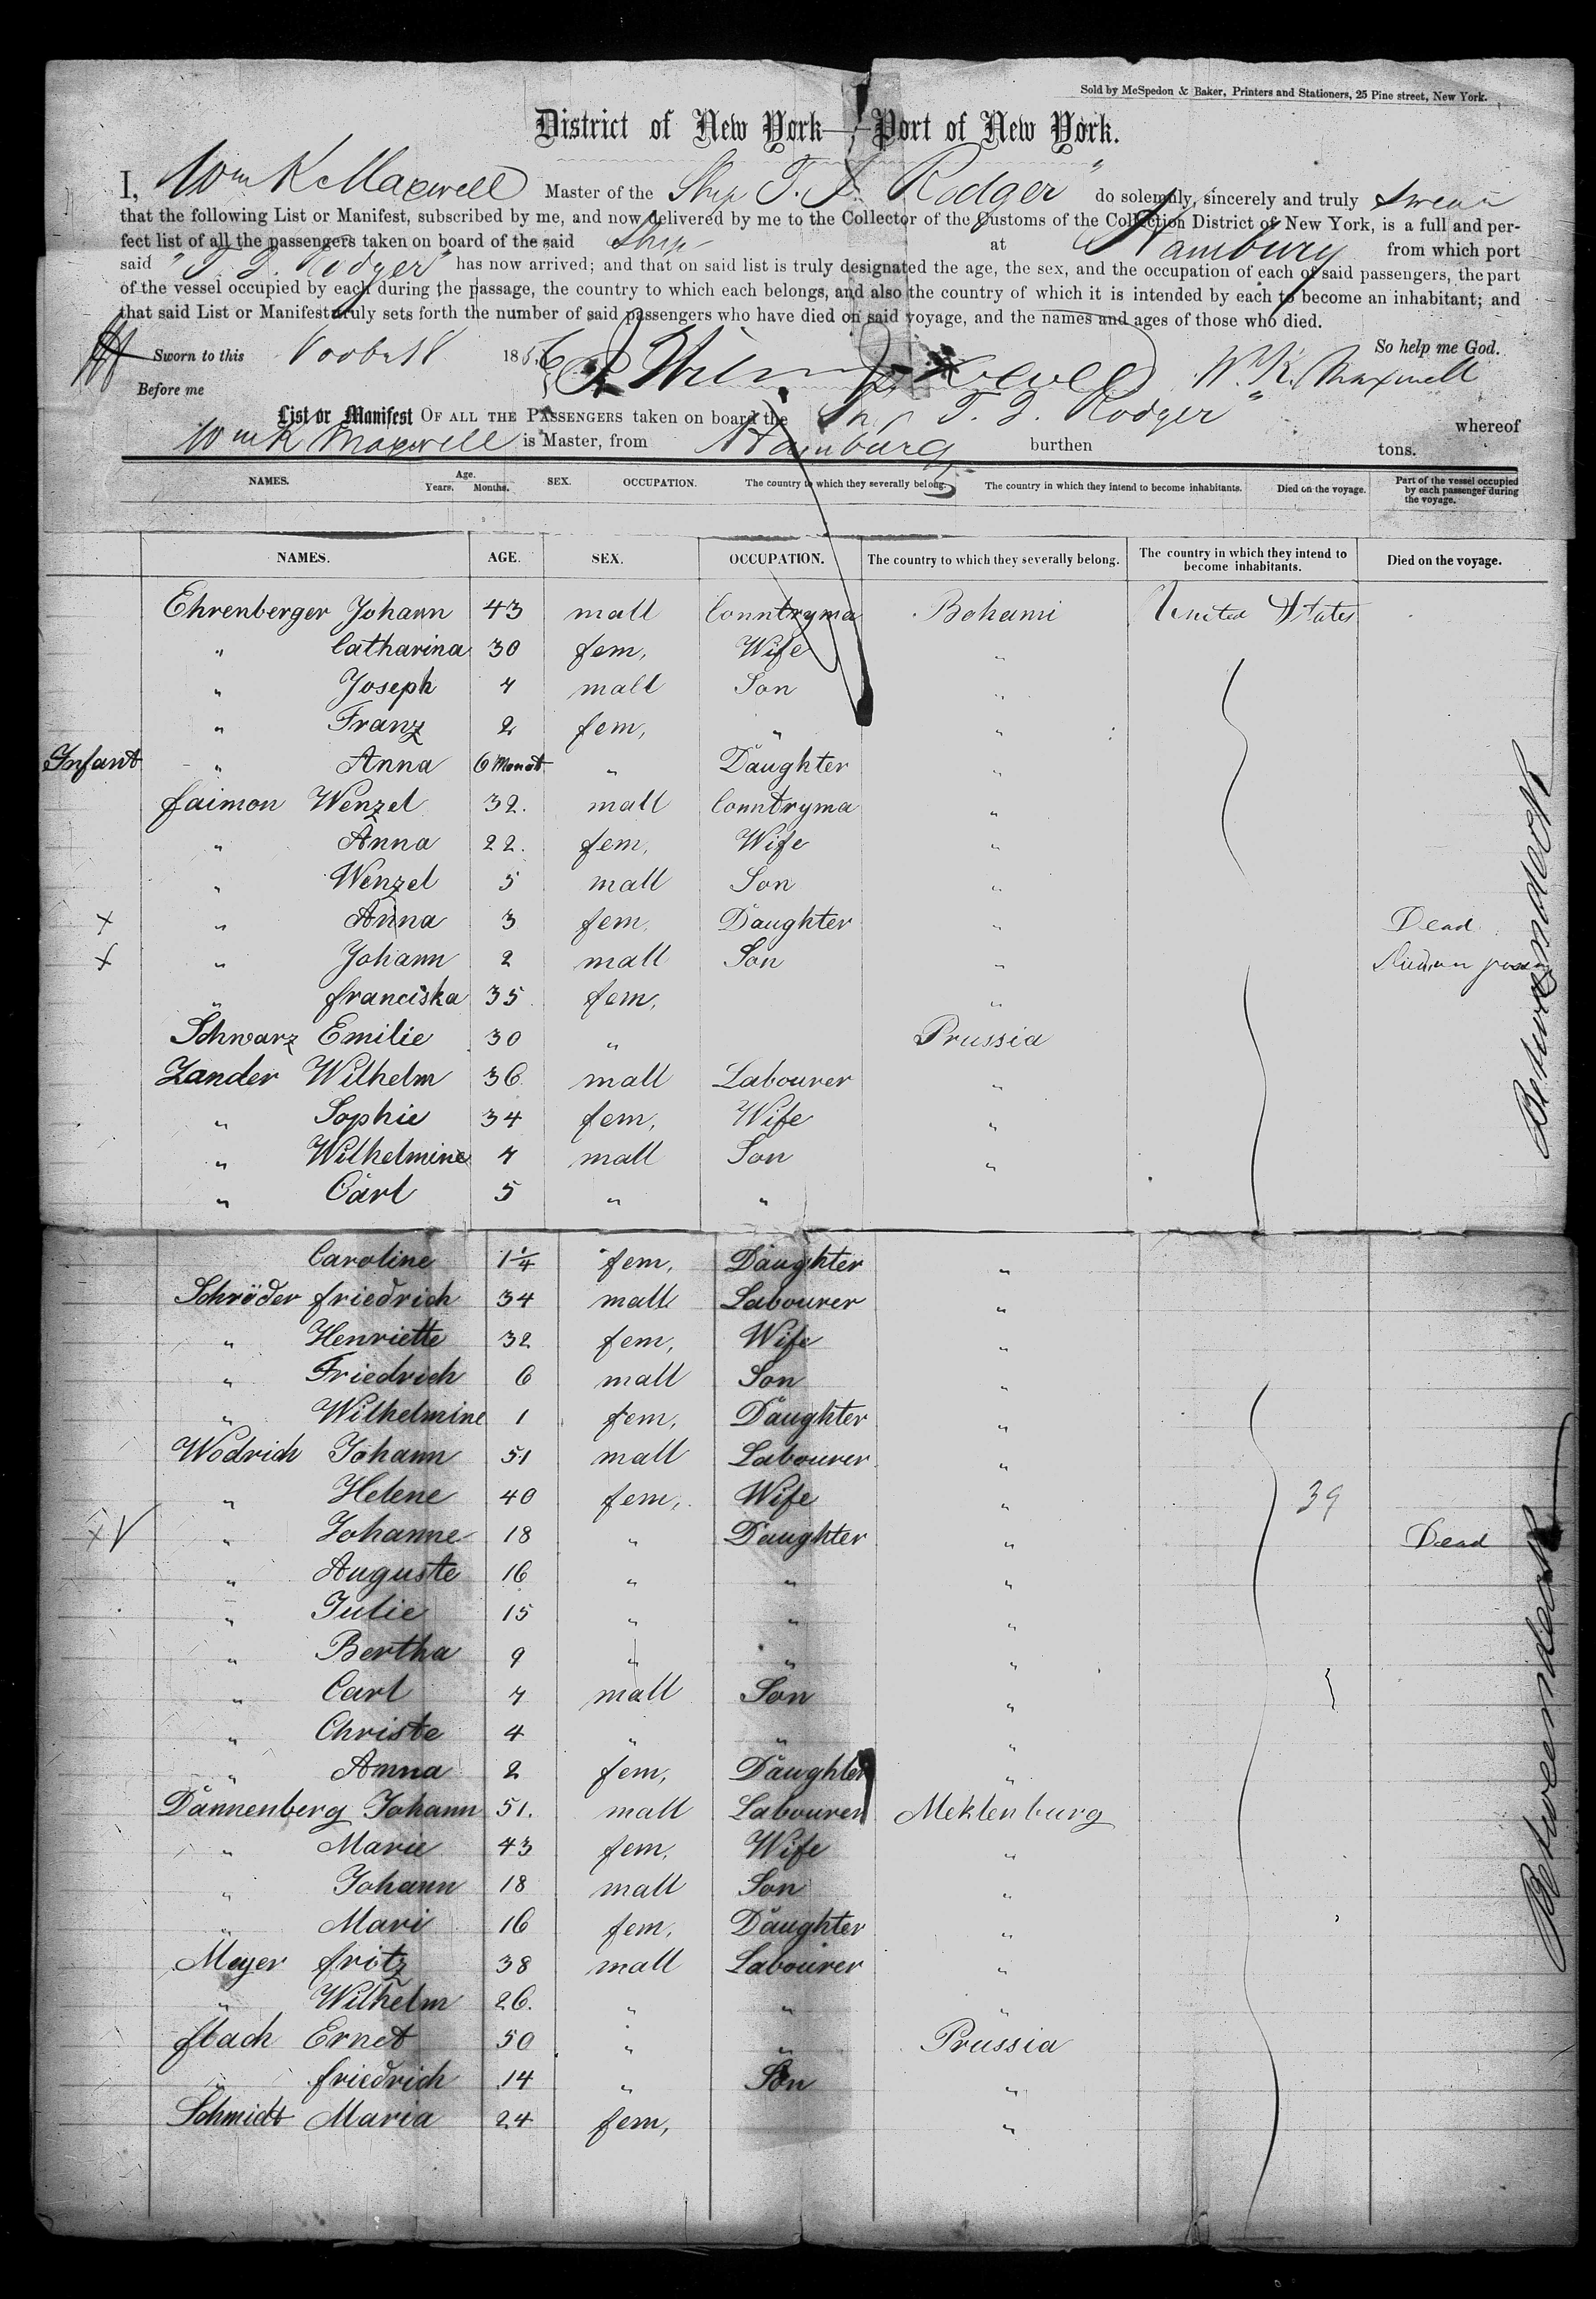 Sold by McSpedon & Baker, Printers and Stationers, 25 Pine street, New York.
District of New York—Port of New York.
I, Wm K Maxwell Master of the Ship T. J. Rodger" do solemnly, sincerely and truly swear
that the following List or Manifest, subscribed by me, and now delivered by me to the Collector of the Customs of the Collection District of New York, is a full and per-
fect list of all the passengers taken on board of the said Ship at Hamburg from which port
said "T. J. Rodger" has now arrived; and that on said list is truly designated the age, the sex, and the occupation of each of said passengers, the part
of the vessel occupied by each during the passage, the country to which each belongs, and also the country of which it is intended by each to become an inhabitant; and
that said List or Manifest truly sets forth the number of said passengers who have died on said voyage, and the names and ages of those who died.
Sworn to this 18 1856 So help me God.
Before me W. K. Maxwell
List or Manifest OF ALL THE PASSENGERS taken on board the Ship T. J. Rodger" whereof
Wm K Maxwell is Master, from Hamburg burthen tons.
NAMES. Age. Years. Months. SEX. OCCUPATION. The country to which they severally belong. The country in which they intend to become inhabitants. Died on the voyage. Part of the vessel occupied by each passenger during the voyage.
NAMES. AGE. SEX. OCCUPATION. The country to which they severally belong. The country in which they intend to become inhabitants. Died on the voyage.
Ehrenberger Johann 43 mall Conntryma Bohami United States
" Catharina 30 fem, Wife "
" Joseph 7 mall Son "
" Franz 2 fem, " "
Infant " Anna 6 Monat " Daughter "
faimon Wenzel 32. mall Conntryma "
" Anna 22. fem, Wife "
" Wenzel 5 mall Son "
x " Anna 3 fem, Daughter " Dead
x " Johann 2 mall Son "
" franciska 35 fem, "
Schwarz Emilie 30 " Prussia
Zander Wilhelm 36 mall Labourer "
" Sophie 34 fem, Wife "
" Wilhelmine 7 mall Son "
" Carl 5 " "
Betweendeck
Caroline 1 1/4 fem, Daughter "
Schröder friedrich 34 mall Labourer "
" Henriette 32 fem, Wife "
" Friedrich 6 mall Son "
" Wilhelmine 1 fem, Daughter "
Wodrich Johann 51 mall Labourer "
" Helene 40 fem, Wife " 39
x V " Johanne 18 " Daughter " Dead
" Auguste 16 " " "
" Julie 15 " " "
" Bertha 9 " " "
" Carl 7 mall Son "
" Christe 4 " " "
" Amna 2 fem, Daughter "
Dannenberg Johann 51. mall Labourer Meklenburg
" Marie 43 fem, Wife "
" Johann 18 mall Son "
" Mari 16 fem, Daughter "
Meyer fritz 38 mall Labourer "
" Wilhelm 26. " " "
fbach Ernet 50 " " Prussia
" friedrich 14 " Son "
Schmidt Maria 24 fem, "
Betweendeck